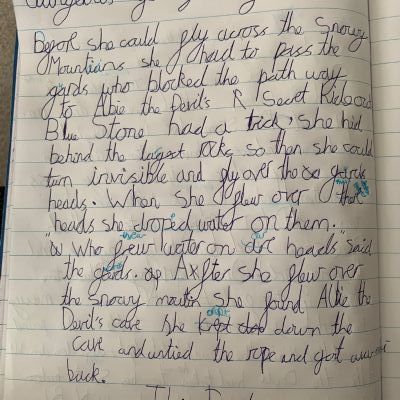 Before she could fly across the Snowy
Mountians she had to pass the
gards who blocked the path way
to Albie the Devil's Secret
Blue Stone had a trick, she hid
behind the largest rocks so then she could
turn invisible and fly over the gards
heads. When she flew over their
heads she droped water on them.
"Who threw water on our heads" said
the gards. After she flew over
the snowy moutin she found Albie the
Devil's cave she crept down the
cave and untied the rope and got
back.